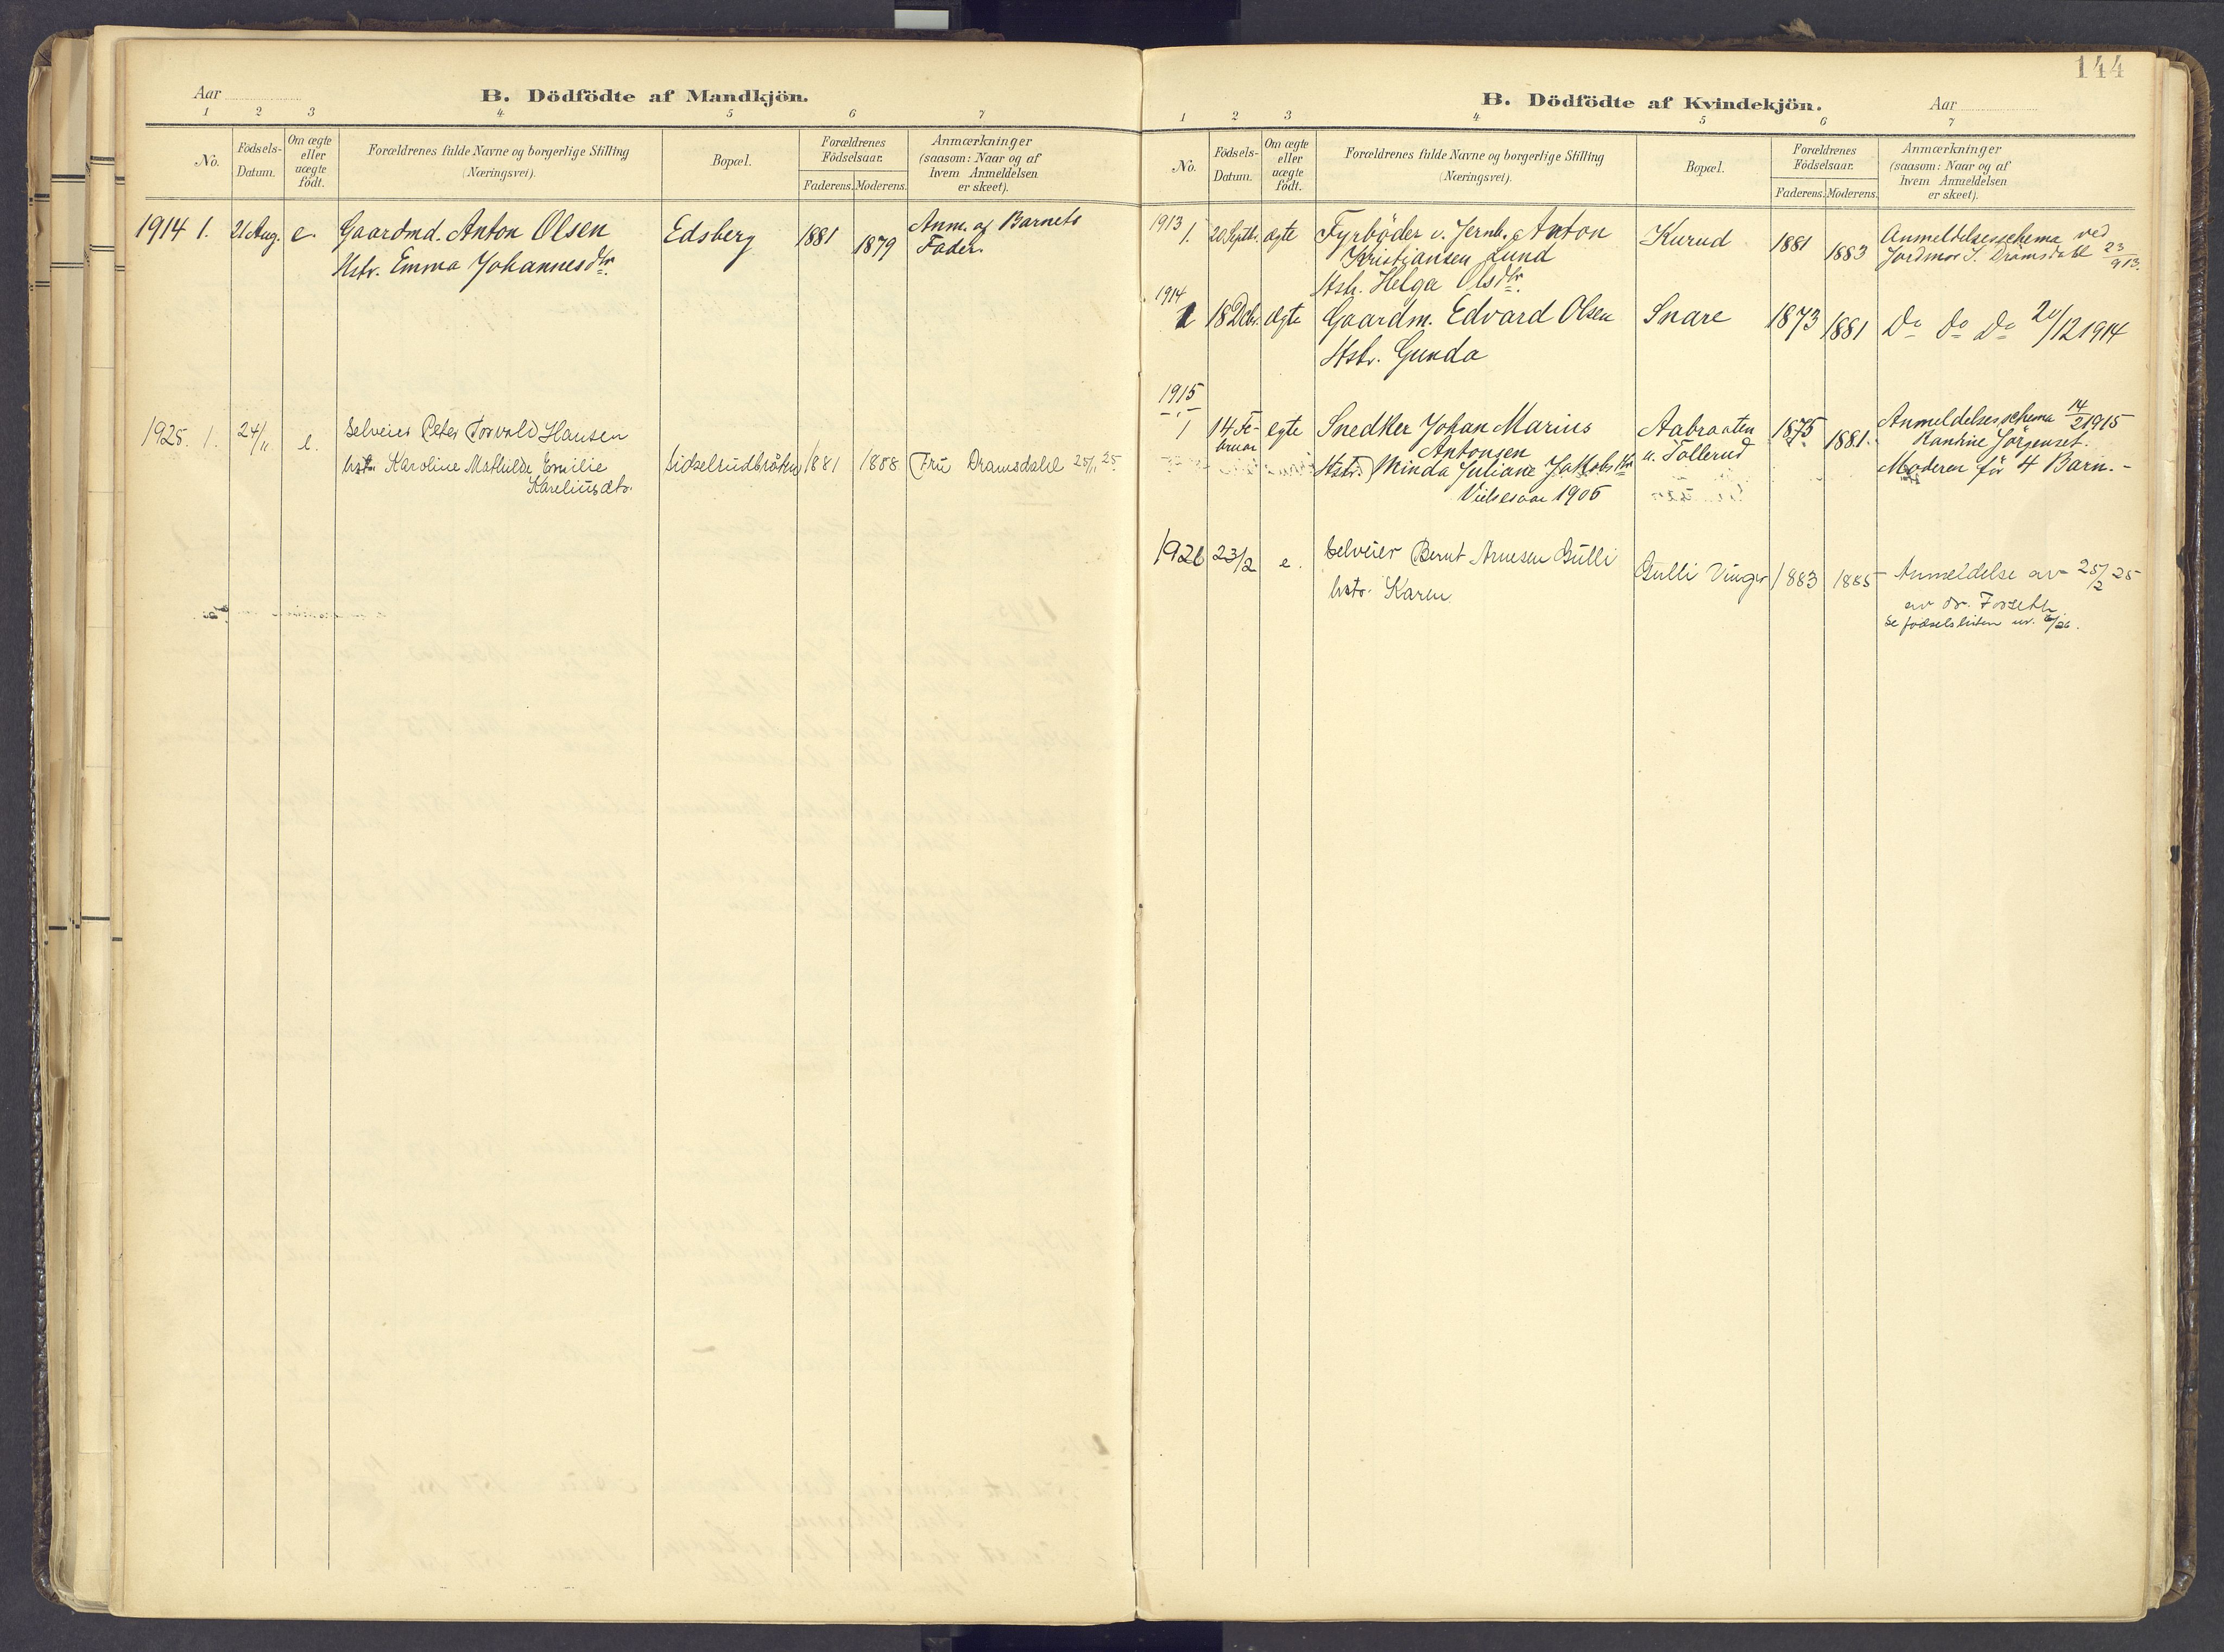 Aar
B. Dödfödte af Mandkjön.
1 2 3 4 5 6 7
No.
Födsels-
Datum.
Om ægte
eller
uægte
födt.
Forældrenes fulde Navne og borgerlige Stilling
(Næringsvei).
Bopæl.
Forældrenes
Födselsaar.
Faderens. Moderens.
Anmærkninger
(saasom: Naar og af
hvem Anmeldelsen
er skeet).
1914 1. 21 Aug. e. Gaardmd. Anton Olsen Edsberg 1881 1879 Anm. af Barnets
Hstr. Emma Johannesdtr. Fader.
1925. 1. 24/11 e. Selveier Peter Torvald Hansen
hstr. Karoline Mathilde Emilie 1881 1888 Fru Dramsdahl 25/11 25
Kareliusdtr.
144
B. Dödfödte af Kvindekjön.
Aar
1 2 3 4 5 6 7
No.
Födsels-
Datum.
Om ægte
eller
uægte
födt.
Forældrenes fulde Navne og borgerlige Stilling
(Næringsvei).
Bopæl.
Forældrenes
Födselsaar.
Faderens. Moderens.
Anmærkninger
(saasom: Naar og af
hvem Anmeldelsen
er skeet).
1913 1. 20 Septbr. ægte Fyrböder v. Jernb. Anton Kurud 1881 1883 Anmeldelsesschema ved
Kristiansen Lund Jordmor S. Dramsdahl 23/9 13.
Hstr. Helga Olsdtr.
1914
1 18 Dcbr. ægte Gaardm. Edvard Olsen Snare 1873 1881 Do Do Do 20/12 1914
Hstr. Gunda
1915
1 14 Fe- egte Snedker Johan Marius Aabraaten 1875 1881. Anmeldelsesschema 14/2 1915
bruar Antonsen u. Tollerud Kandine Jörgenset.
Hstr. Minda Juliane Jakobsdtr Moderen för 4 Barn. -
Vielsesaar 1906
1926 23/2 e. Selveier Bernt Arnesen Gulli Gulli Vinger 1883 1885 Anmeldelse av 25/2 25
hstr. Karen av dr. Forseth
se fødselslisten nr. 6/26.